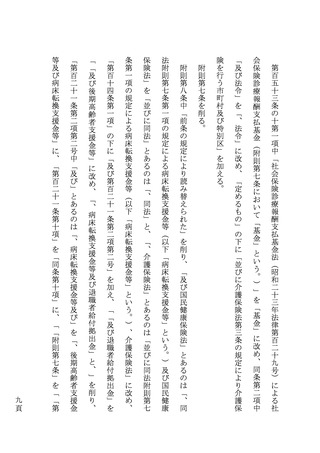 第百五十三条の十第一項中「社会保険診療報酬支払基金法（昭和二十三年法律第百二十九号）による社
会保険診療報酬支払基金（附則第七条において「基金」という。）」を「基金」に改め、同条第二項中
「及び法令」を「、法令」に改め、「定めるもの」の下に「並びに介護保険法第三条の規定により介護保
険を行う市町村及び特別区」を加える。
附則第七条を削る。
附則第八条中「前条の規定により読み替えられた」を削り、「及び国民健康保険法」とあるのは「、同
法附則第七条第一項の規定による病床転換支援金等（以下「病床転換支援金等」という。）及び国民健康
保険法」を「並びに同法」とあるのは「、同法」と、「、介護保険法」とあるのは「並びに同法附則第七
条第一項の規定による病床転換支援金等（以下「病床転換支援金等」という。）、介護保険法」に改め、
「第百十四条第一項」の下に「及び第百二十一条第二項第二号」を加え、「「及び退職者給付拠出金」を
「「及び後期高齢者支援金等」に改め、「、病床転換支援金等及び退職者給付拠出金」と、」を削り、
「第百二十一条第二項第二号中「及び」とあるのは「、病床転換支援金等及び」を「「、後期高齢者支援金
等及び病床転換支援金等」に、「第百二十一条第十項」を「同条第十項」に、「「附則第七条」を「「第
九頁